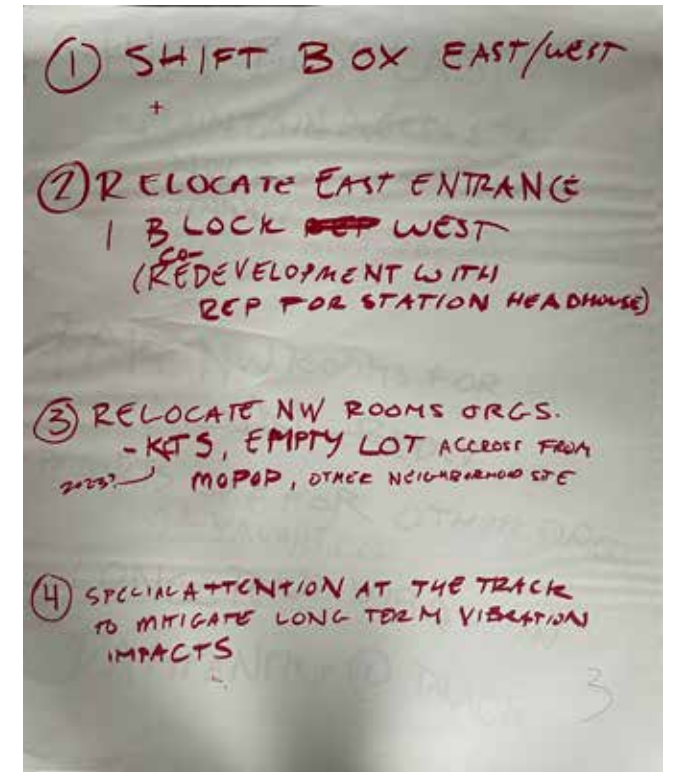 ① SHIFT BOX EAST/WEST
+
② RELOCATE EAST ENTRANCE
1 BLOCK WEST
CO-
(REDEVELOPMENT WITH
REP FOR STATION HEADHOUSE)
③ RELOCATE NW ROOMS ORGS.
- KCTS, EMPTY LOT ACCROSS FROM
2023? MOPOP, OTHER NEIGHBORHOOD SITE
④ SPECIAL ATTENTION AT THE TRACK
TO MITIGATE LONG TERM VIBRATION
IMPACTS
3